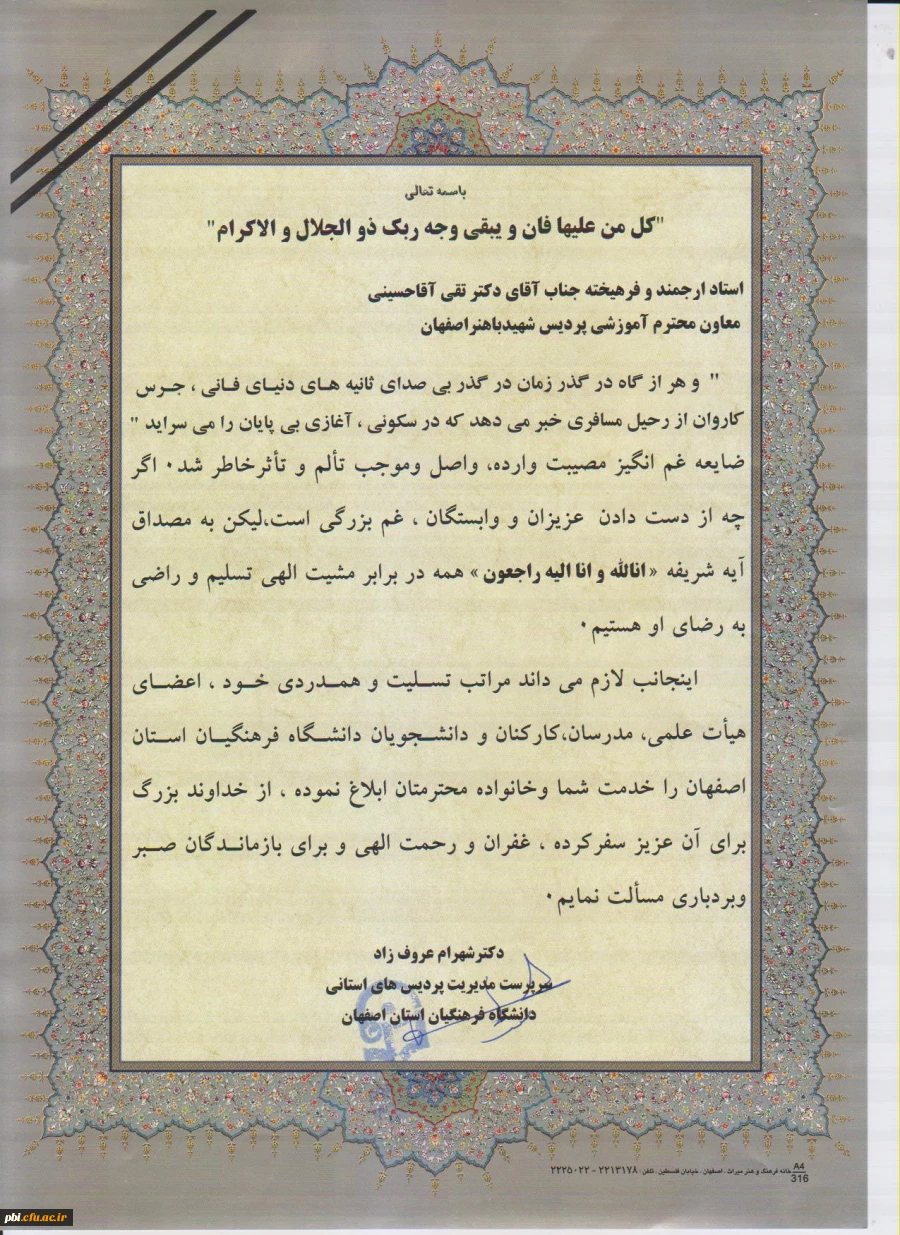 باسمه تعالی
"کل من علیها فان و یبقی وجه ربک ذو الجلال و الاکرام"
استاد ارجمند و فرهیخته جناب آقای دکتر تقی آقاحسینی
معاون محترم آموزشی پردیس شهیدباهنراصفهان
" و هر از گاه در گذر زمان در گذر بی صدای ثانیه های دنیای فانی ، جرس
کاروان از رحیل مسافری خبر می دهد که در سکونی ، آغازی بی پایان را می سراید "
ضایعه غم انگیز مصیبت وارده، واصل وموجب تألم و تأثرخاطر شد۰ اگر
چه از دست دادن عزیزان و وابستگان ، غم بزرگی است،لیکن به مصداق
آیه شریفه «انالله و انا الیه راجعون» همه در برابر مشیت الهی تسلیم و راضی
به رضای او هستیم۰
اینجانب لازم می داند مراتب تسلیت و همدردی خود ، اعضای
هیأت علمی، مدرسان،کارکنان و دانشجویان دانشگاه فرهنگیان استان
اصفهان را خدمت شما وخانواده محترمتان ابلاغ نموده ، از خداوند بزرگ
برای آن عزیز سفرکرده ، غفران و رحمت الهی و برای بازماندگان صبر
وبردباری مسألت نمایم۰
دکترشهرام عروف زاد
سرپرست مدیریت پردیس های استانی
دانشگاه فرهنگیان استان اصفهان
خانه فرهنگ و هنر میراث ، اصفهان ، خیابان فلسطین ، تلفن : ۲۲۱۳۱۷۸ - ۲۲۲۵۰۲۲
A4
316
pbi.cfu.ac.ir